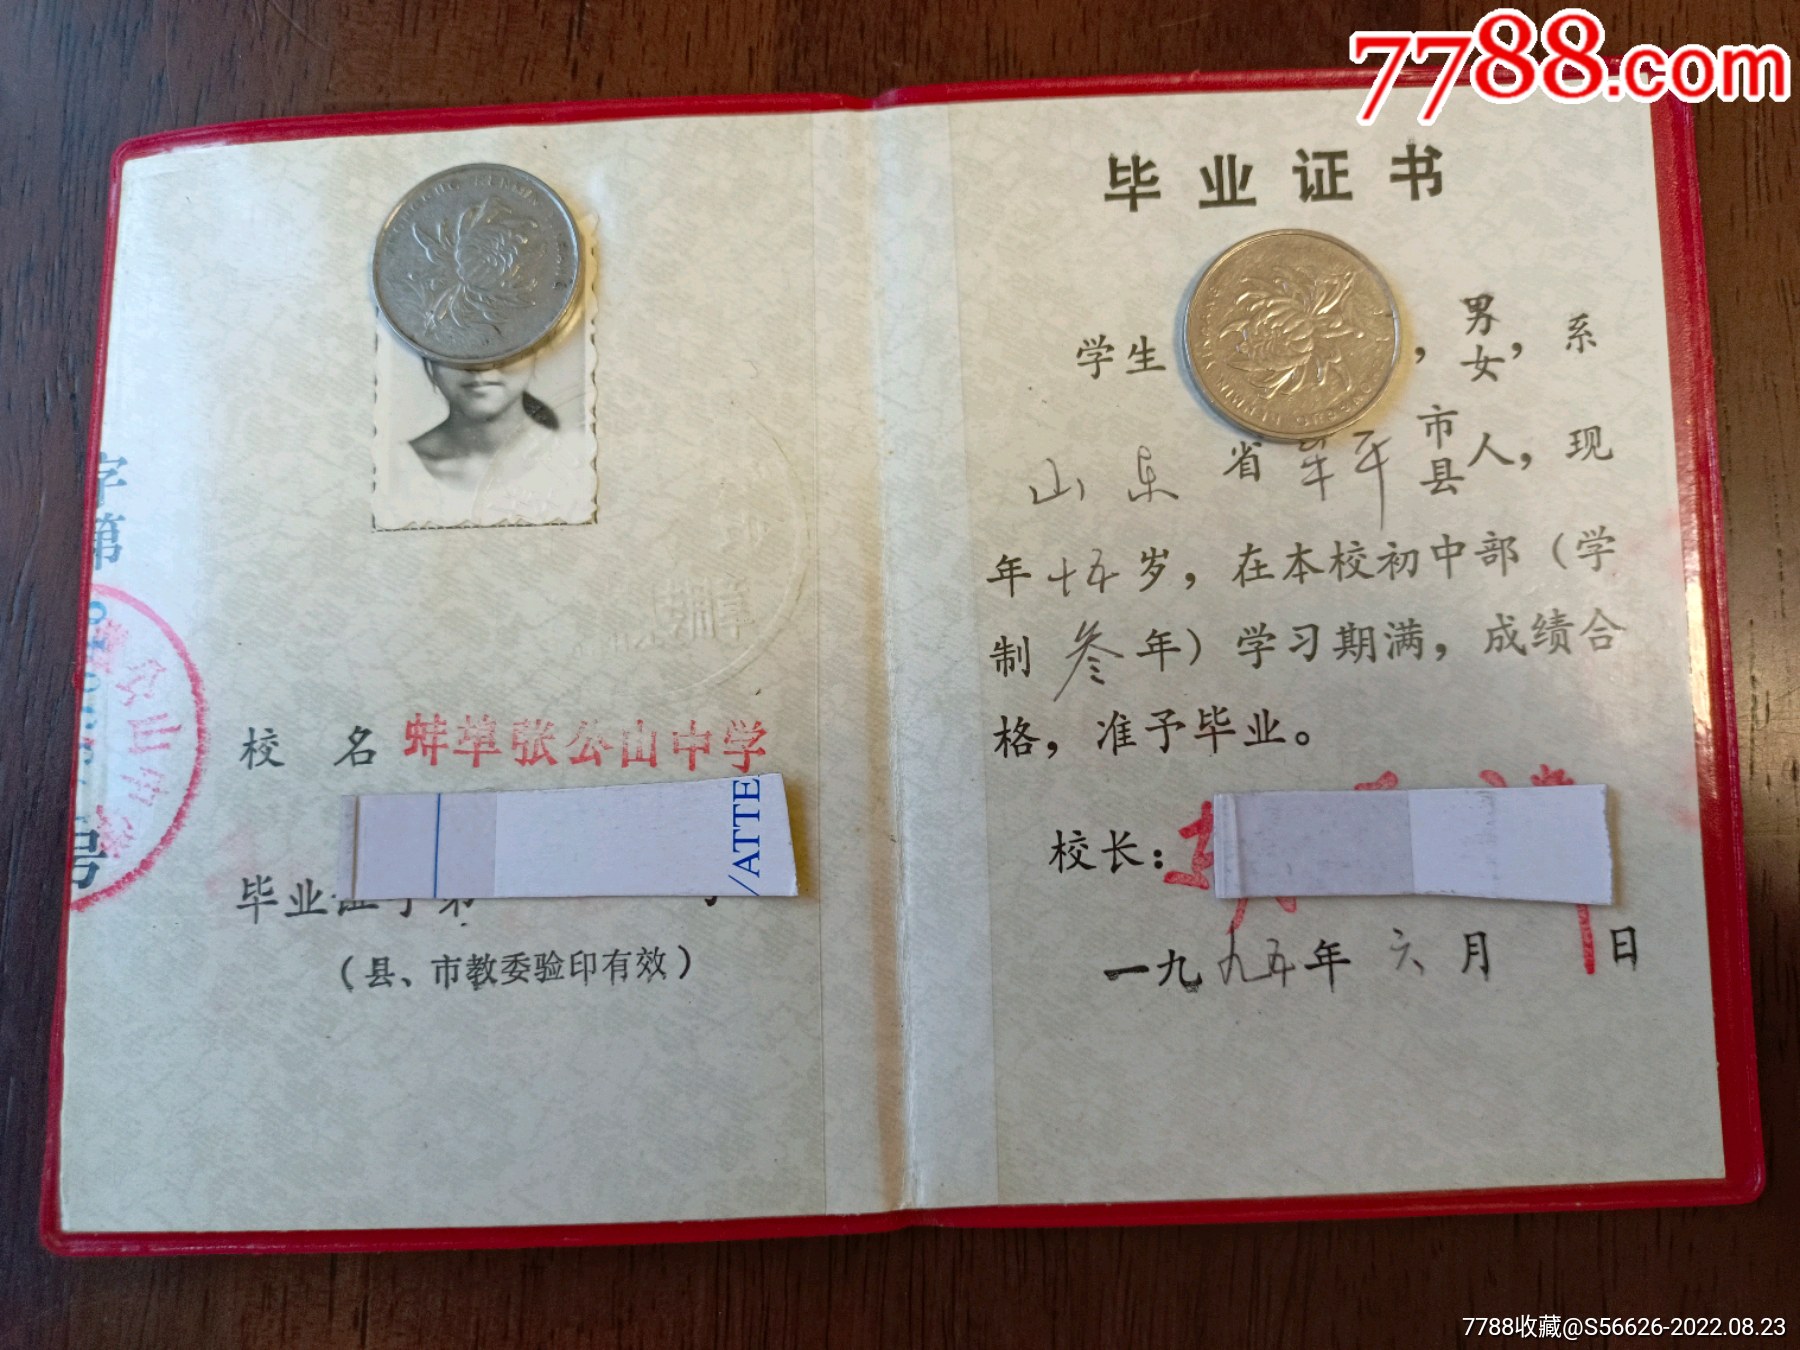 7788.com
毕业证书
学生
，男女，系
山东省牟平市县人，现
年十五岁，在本校初中部（学
制叁年）学习期满，成绩合
格，准予毕业。
校长：
一九九五年六月 日
校 名 蚌埠张公山中学
毕业证字第
（县、市教委验印有效）
字第
号
公山中学
/ATTE
7788收藏@S56626-2022.08.23